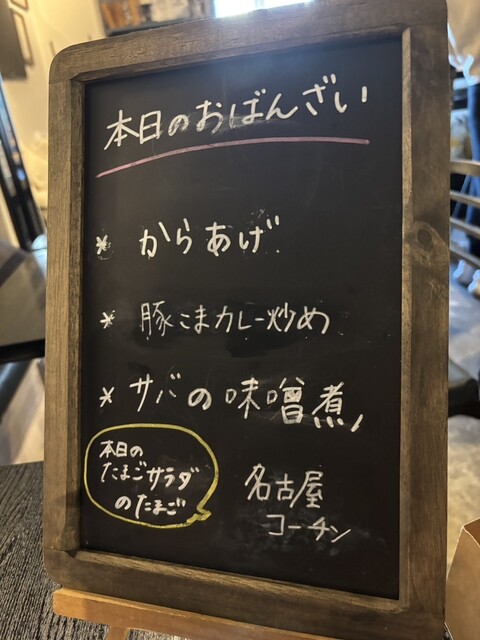 本日のおばんざい
* からあげ
* 豚こまカレー炒め
* サバの味噌煮
本日の
たまごサラダ
のたまご
名古屋
コーチン